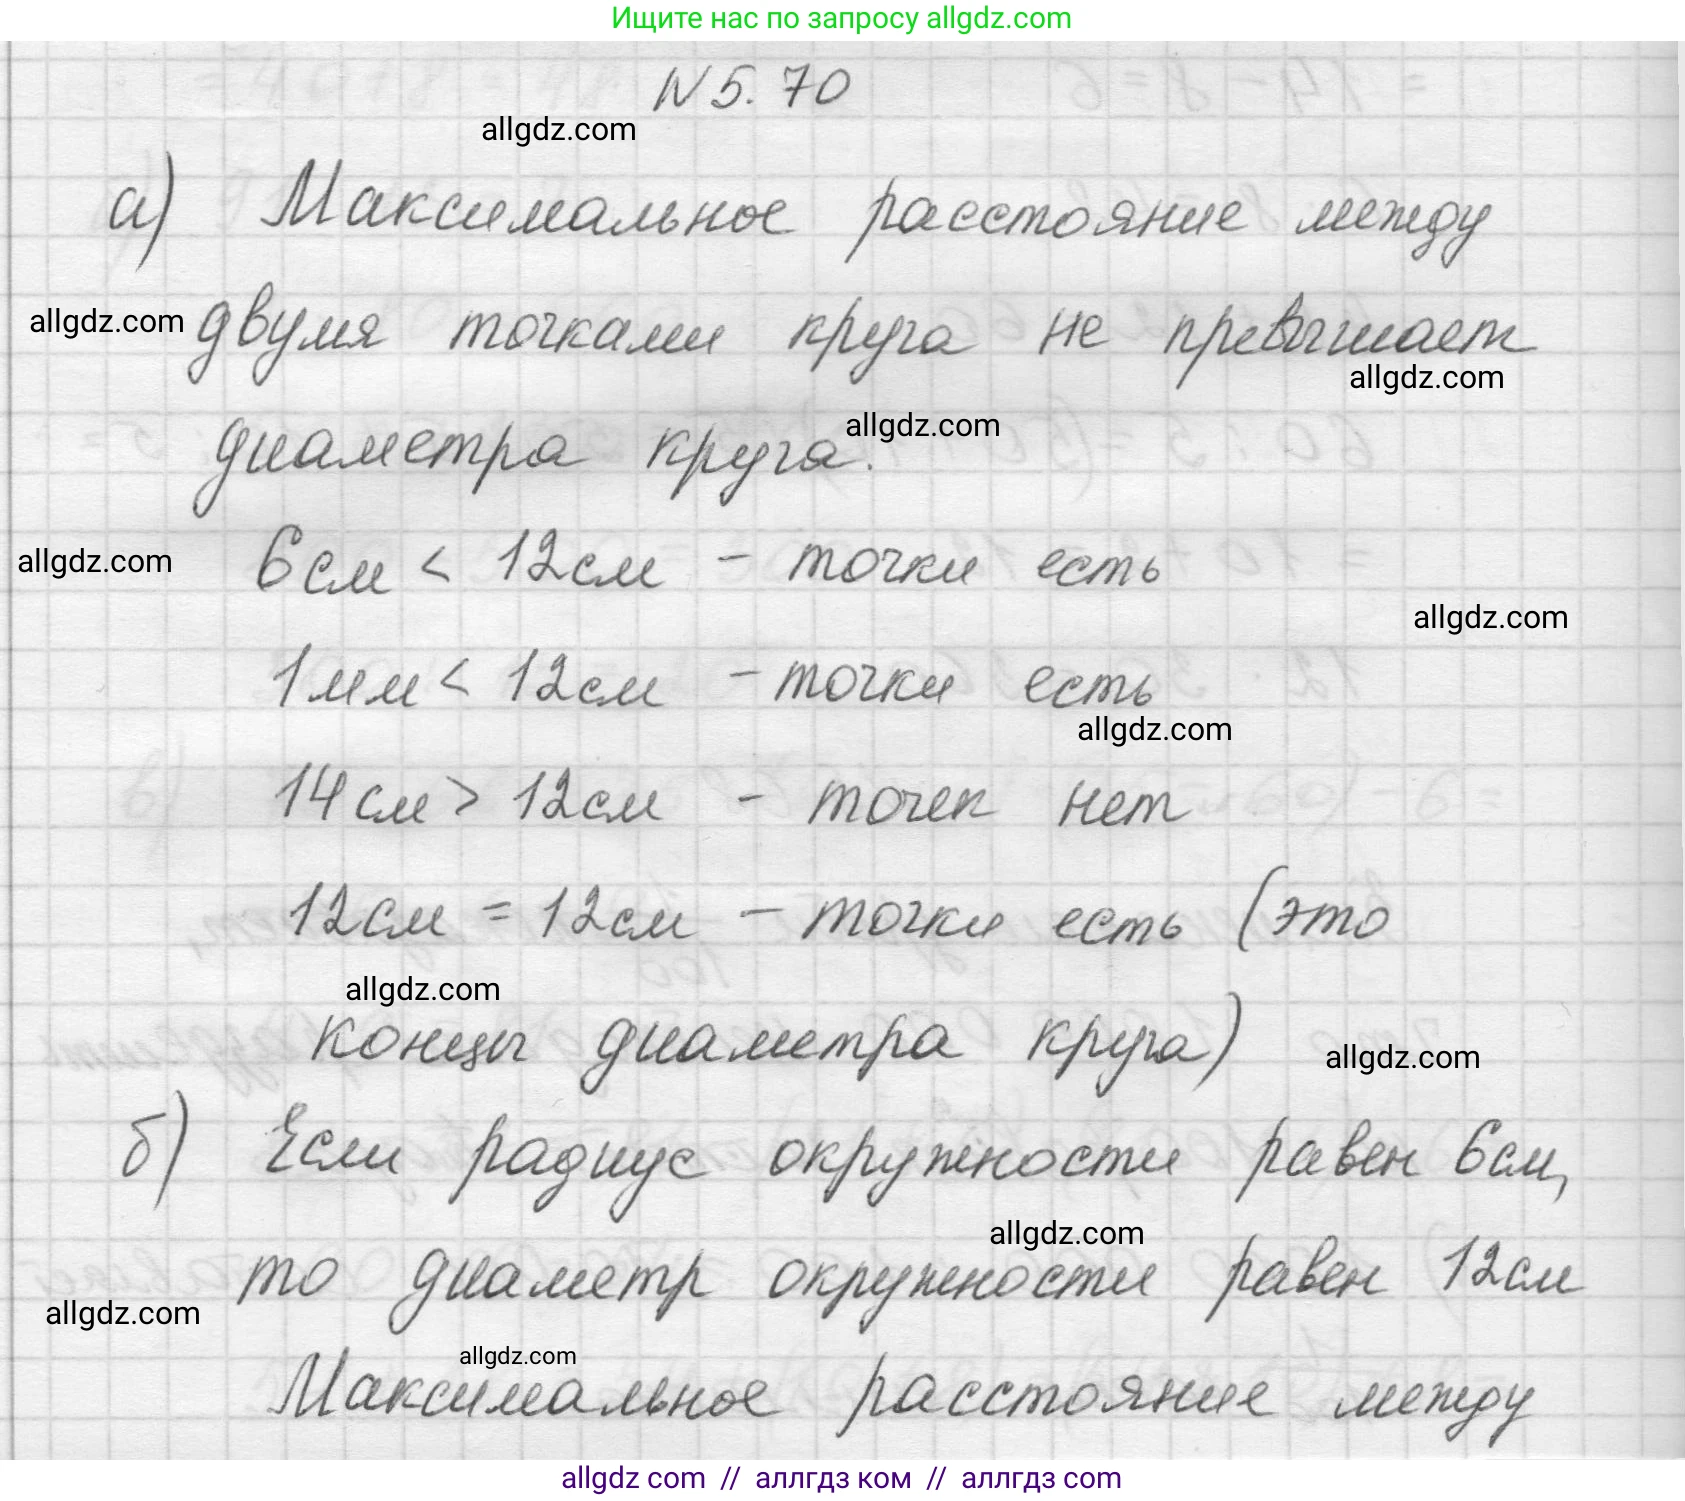 Ищите нас по запросу allgdz.com
N 5. 70
allgdz.com
а) Максимальное расстояние между
allgdz.com
двумя точками круга не превышает
allgdz.com
allgdz.com
диаметра круга.
allgdz.com
6см < 12см - точки есть
allgdz.com
1мм < 12см - точки есть
allgdz.com
14см > 12см - точек нет
12см = 12см - точки есть (это
allgdz.com
концы диаметра круга)
allgdz.com
б) Если радиус окружности равен 6см,
allgdz.com
то диаметр окружности равен 12см
allgdz.com
allgdz.com
Максимальное расстояние между
allgdz com // аллгдз ком // аллгдз com